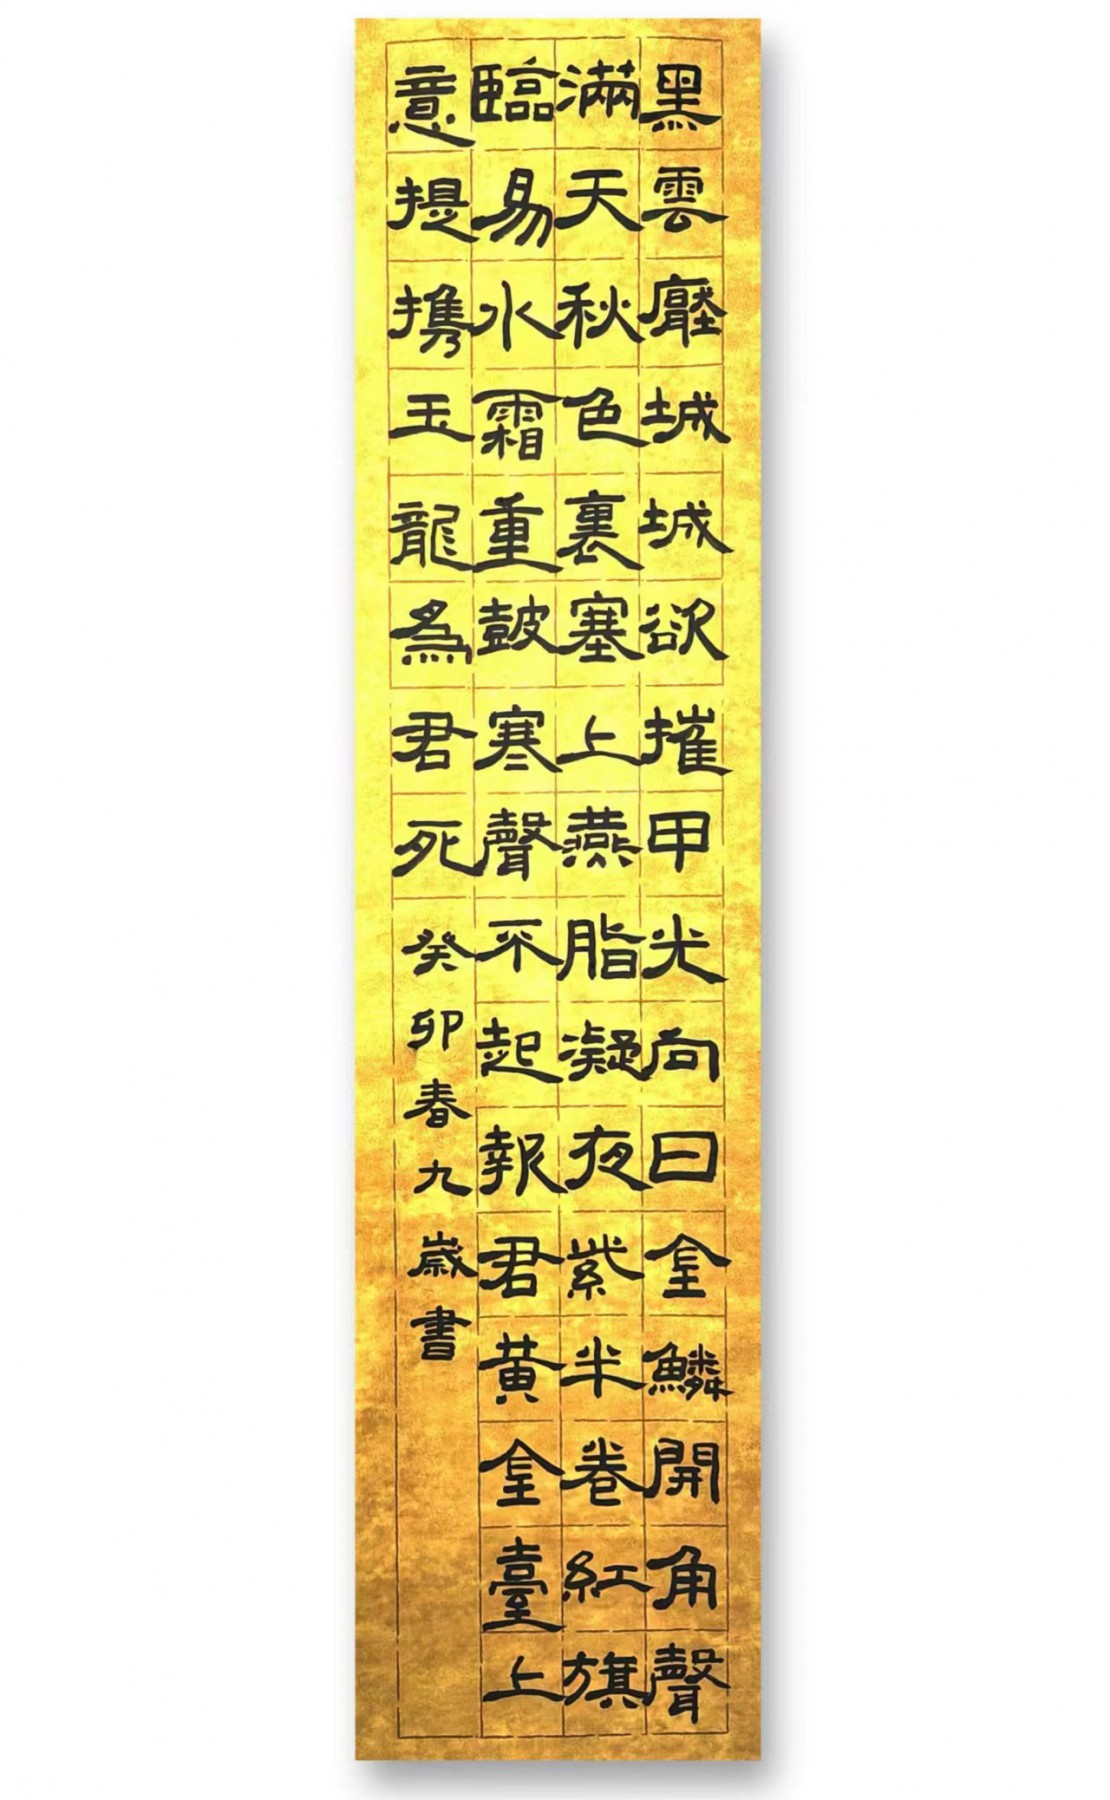 黑雲壓城城欲摧甲光向日金鱗開角聲
滿天秋色裏塞上燕脂凝夜紫半卷紅旗
臨易水霜重鼓寒聲不起報君黃金臺上
意提携玉龍為君死癸卯春九歲書